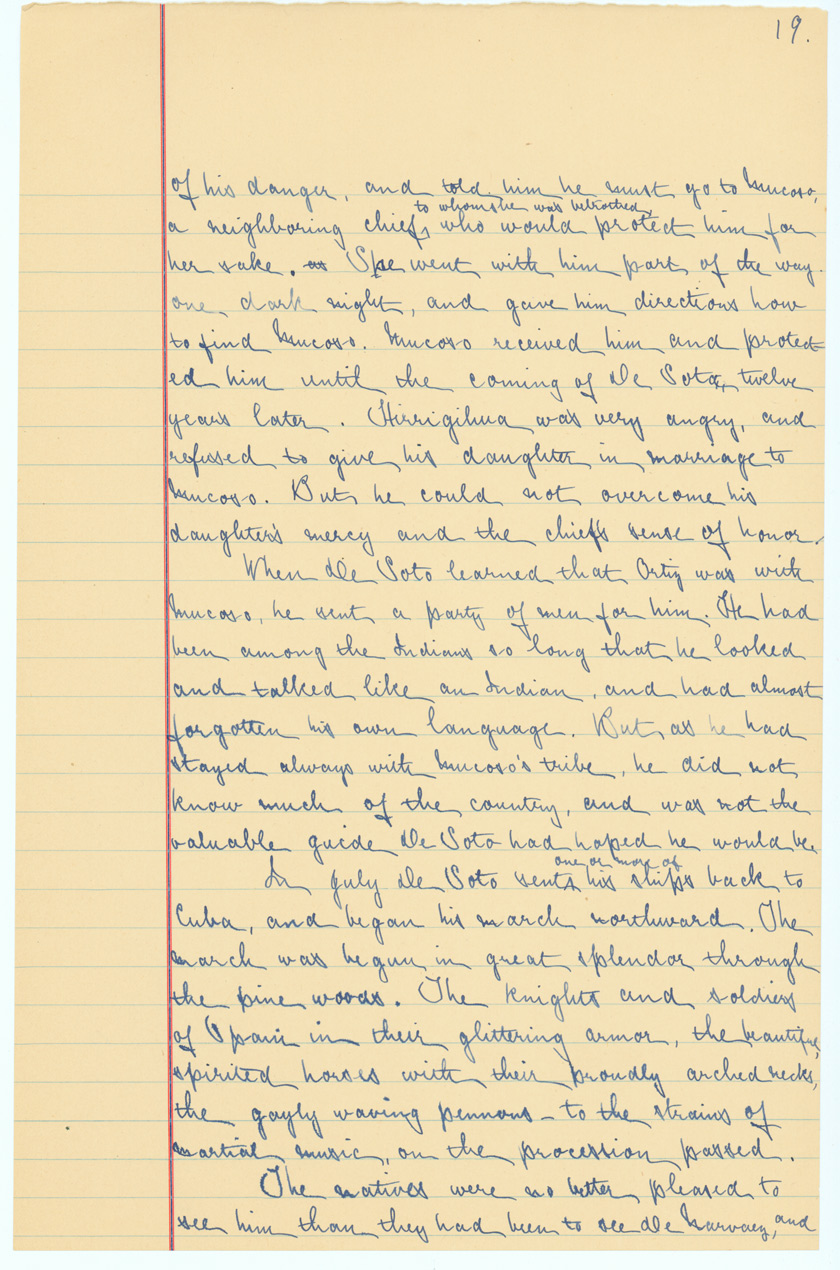 19.
of his danger, and told him he must go to Mucoso,
to whom she was betrothed,
a neighboring chief, who would protect him for
her sake. as She went with him part of the way
one dark night, and gave him directions how
to find Mucoso. Mucoso received him and protect-
ed him until the coming of De Soto, twelve
years later. Hirrigihua was very angry, and
refused to give his daughter in marriage to
Mucoso. But he could not overcome his
daughter's mercy and the chief's sense of honor.
When De Soto learned that Ortiz was with
Mucoso, he sent a party of men for him. He had
been among the Indians so long that he looked
and talked like an Indian, and had almost
forgotten his own language. But, as he had
stayed always with Mucoso's tribe, he did not
know much of the country, and was not the
valuable guide De Soto had hoped he would be.
one or more of
In July De Soto sent his ships back to
Cuba, and began his march northward. The
march was begun in great splendor through
the pine woods. The knights and soldiers
of Spain in their glittering armor, the beautiful,
spirited horses with their proudly arched necks,
the gayly waving pennons - to the strains of
martial music, on the procession passed.
The natives were no better pleased to
see him than they had been to see De Narvaez, and